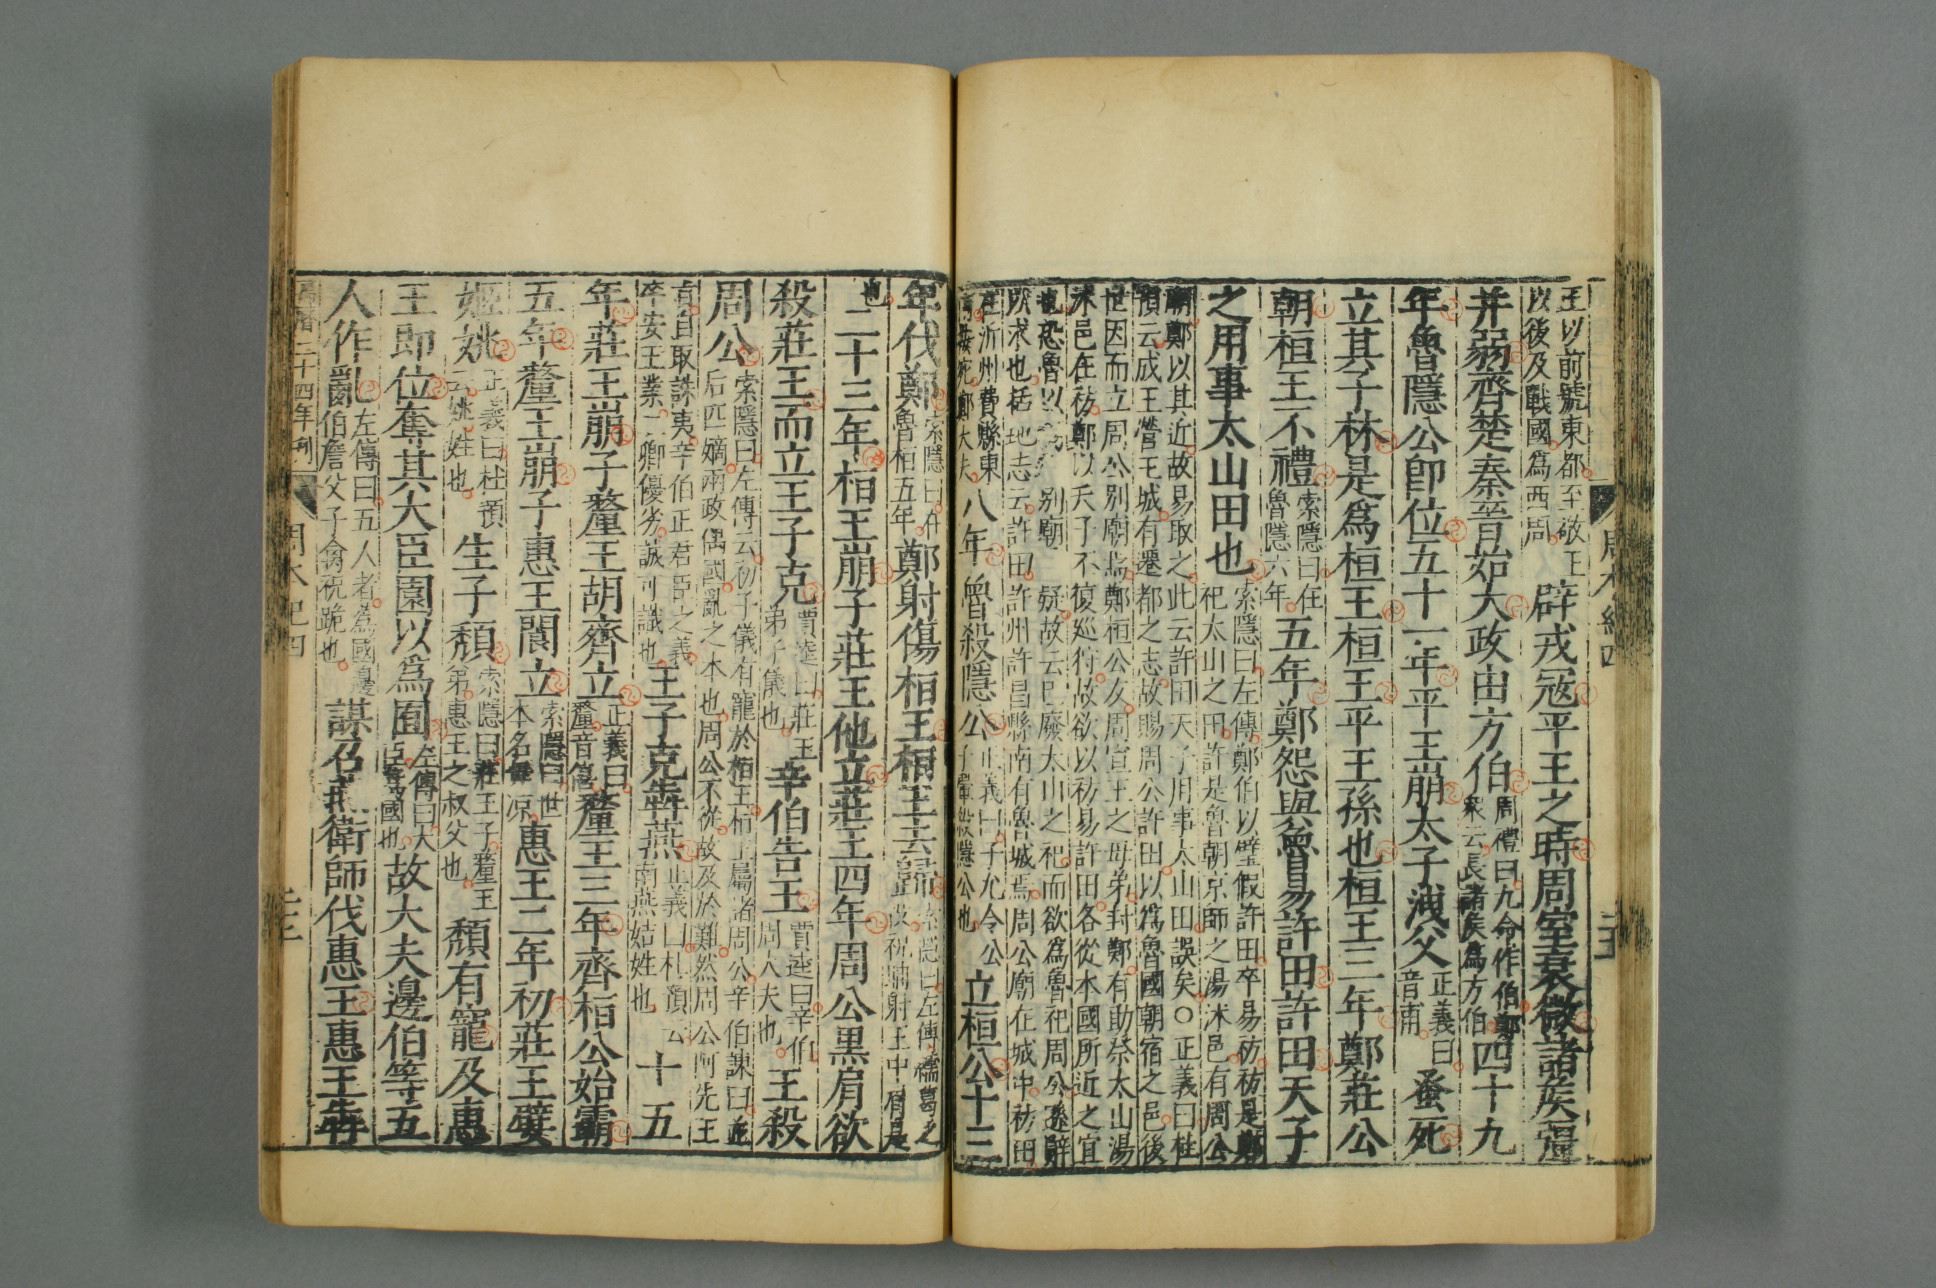 王以前號東都至敬王
以後及戰國爲西周辟戎寇平王之時周室衰微諸矦彊
并弱齊楚秦晉始大政由方伯周禮曰九命作伯鄭
衆云長諸矦爲方伯四十九
年魯隱公卽位五十一年平王崩太子洩父正義曰
音甫蚤死
立其子林是爲桓王桓王平王孫也桓王三年鄭莊公
朝桓王不禮索隱曰在
魯隱六年五年鄭怨與魯易許田許田天子
之用事太山田也索隱曰左傳鄭伯以璧假許田卒易祊祊是鄭
祀太山之田許是魯朝京師之湯沐邑有周公
廟鄭以其近故易取之此云許田天子用事太山田誤矣○正義曰杜
預云成王營王城有遷都之志故賜周公許田以爲魯國朝宿之邑後
世因而立周公別廟焉鄭桓公友周宣王之母弟封鄭有助祭太山湯
沐邑在祊鄭以天子不復巡狩故欲以祊易許田各從本國所近之宜
也恐魯以別廟疑故云已廢太山之祀而欲爲魯祀周公遜辭
以求也括地志云許田許州許昌縣南有魯城焉周公廟在城中祊田
在沂州費縣東
八年魯殺隱公正義曰子允令公
子翬殺隱公也立桓公十三
年伐鄭索隱曰在
魯桓五年鄭射傷桓王桓王去歸索隱曰左傳繻葛之
戰祝聃射王中肩是
也二十三年桓王崩子莊王他立莊王四年周公黑肩欲
殺莊王而立王子克賈逵曰莊王
弟子儀也辛伯告王賈逵曰辛伯
周大夫也王殺
周公索隱曰左傳云初子儀有寵於桓王桓王屬諸周公辛伯諫曰並
后匹嫡兩政偶國亂之本也周公不從故及於難然周公阿先王
旨自取誅夷辛伯正君臣之義
卒安王業二卿優劣誠可識也王子克犇燕正義曰杜預云
南燕姞姓也十五
年莊王崩子釐王胡齊立正義曰
釐音僖釐王三年齊桓公始霸
五年釐王崩子惠王閬立索隱曰世
本名毋凉惠王二年初莊王嬖
姬姚正義曰杜預
云姚姓也生子頽索隱曰莊王子釐王
弟惠王之叔父也頽有寵及惠
王卽位奪其大臣園以爲囿左傳曰大
臣蔿國也故大夫邊伯等五
人作亂左傳曰五人者蔿國邊
伯詹父子禽祝跪也謀召燕衛師伐惠王惠王犇
萬曆二十四年刊
周本紀四